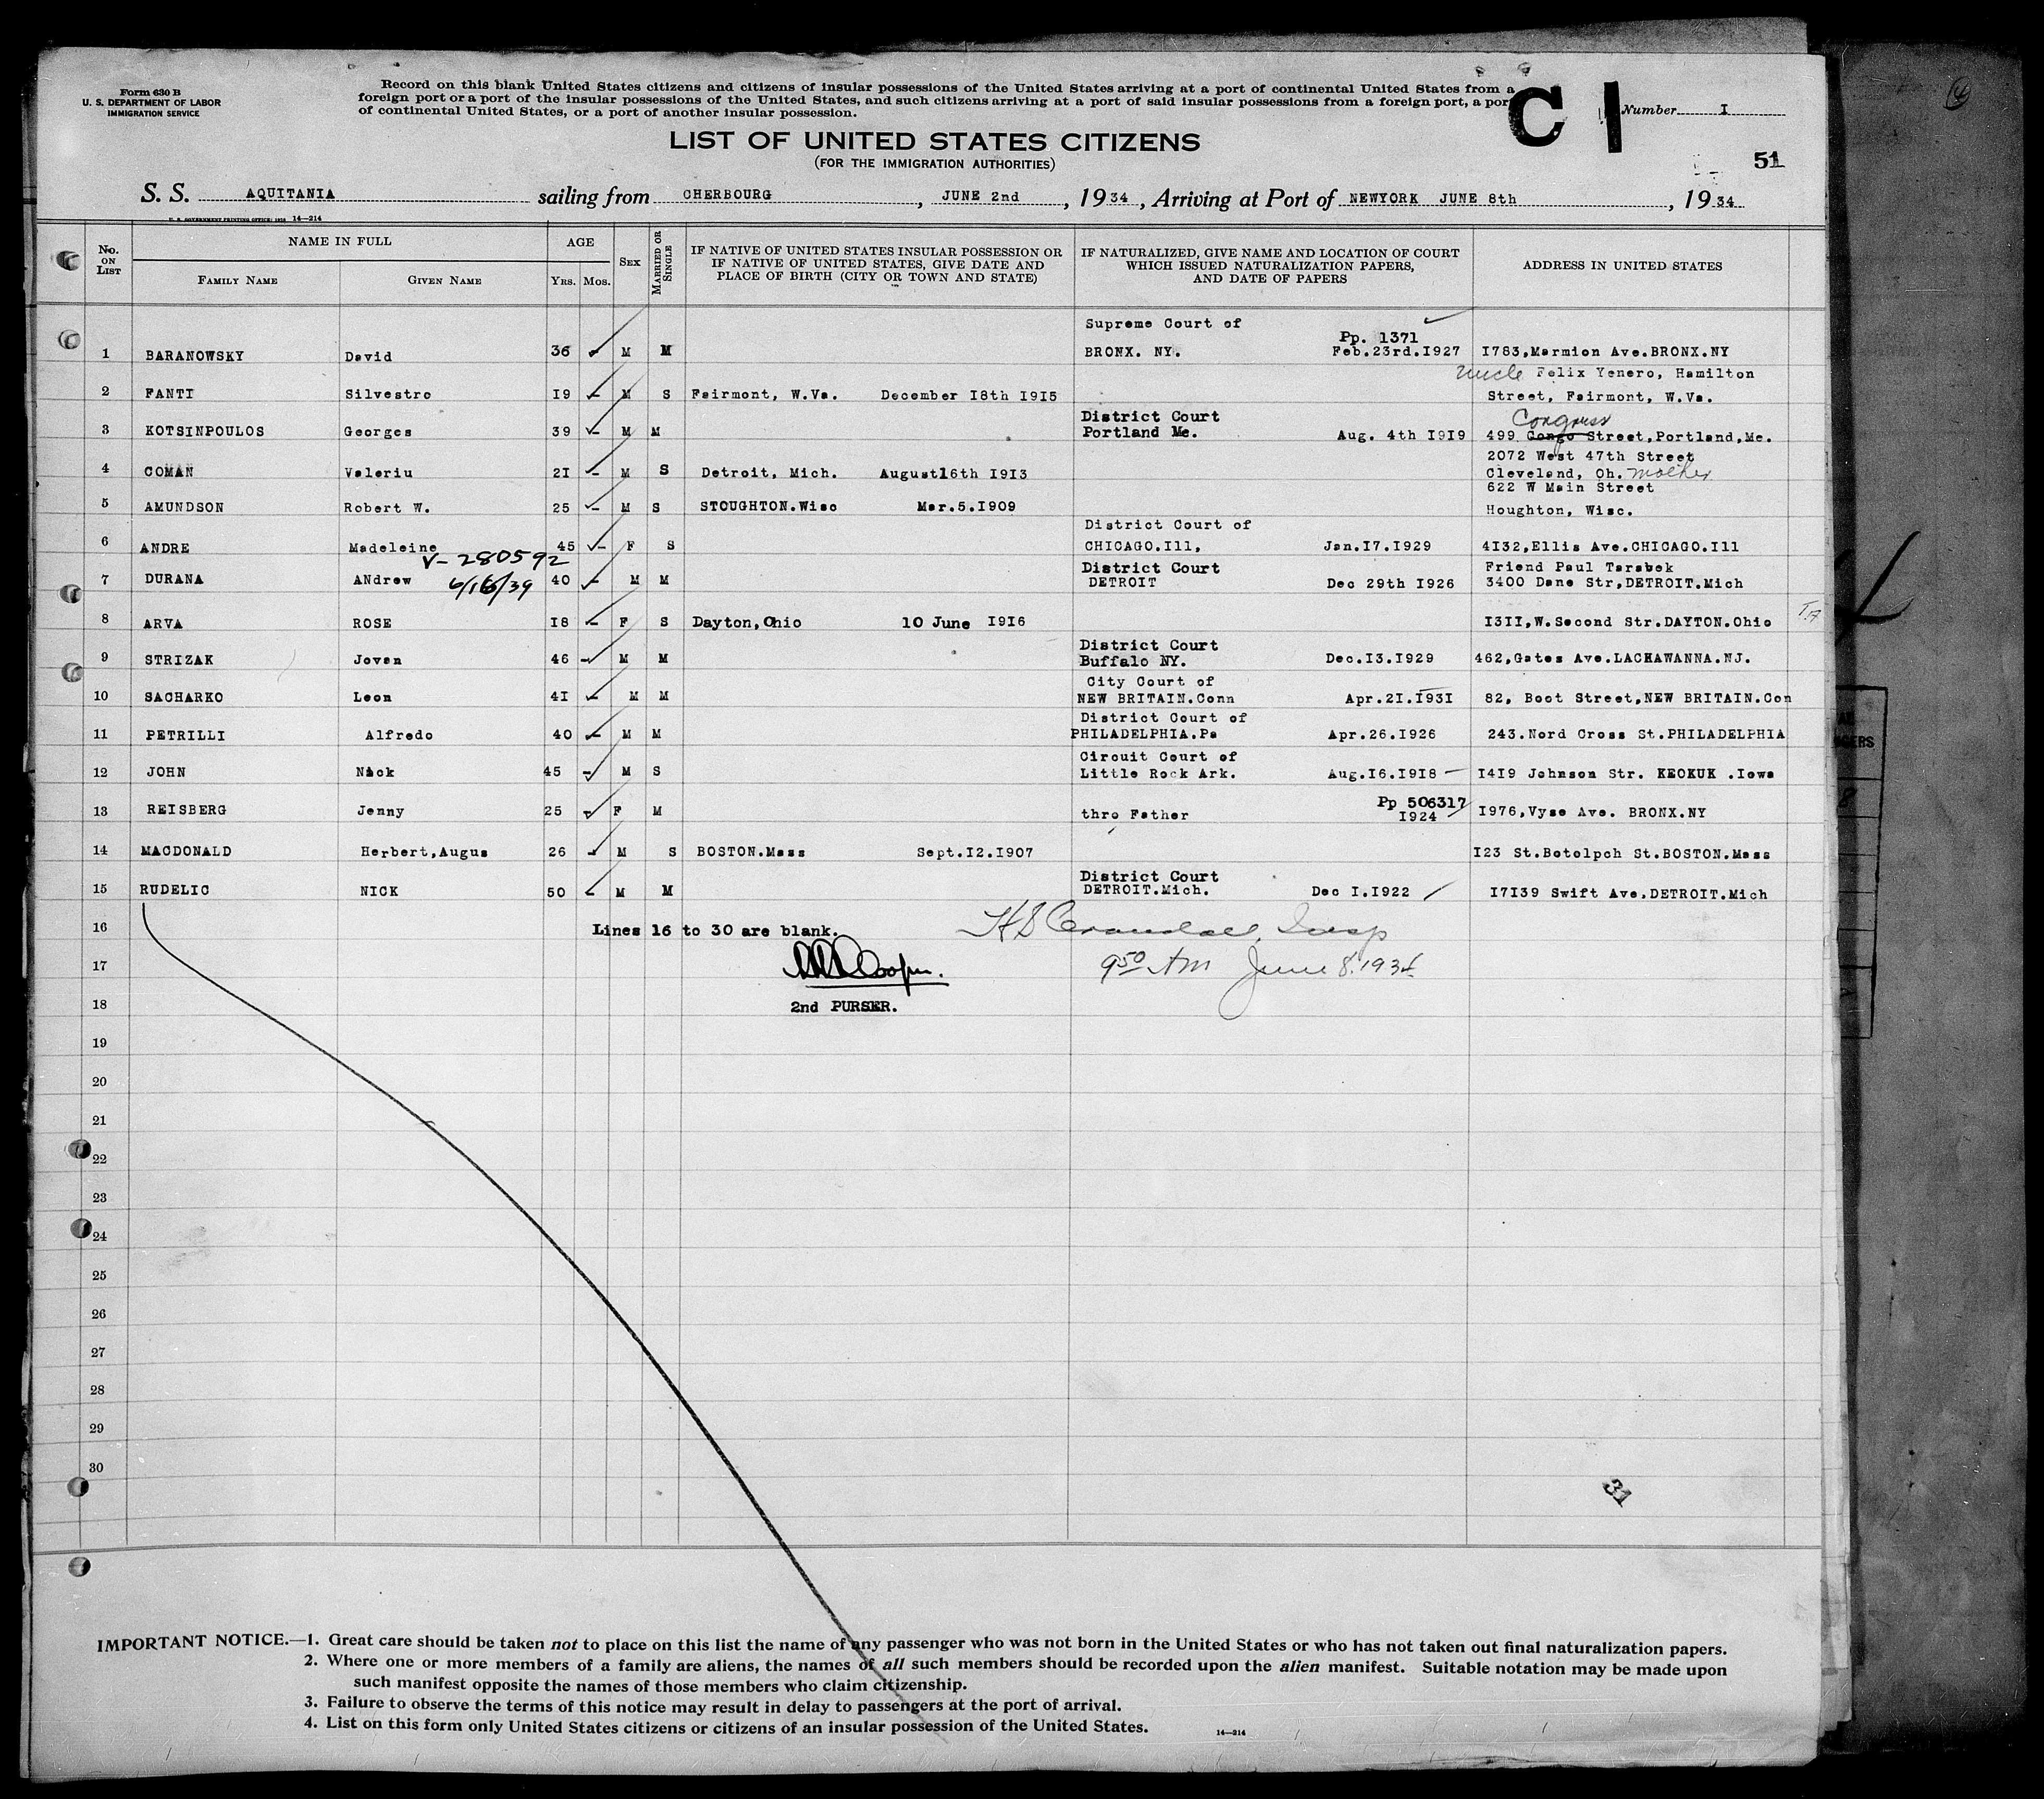 Form 630 B
U. S. DEPARTMENT OF LABOR
IMMIGRATION SERVICE
Record on this blank United States citizens and citizens of insular possessions of the United States arriving at a port of continental United States from a
foreign port or a port of the insular possessions of the United States, and such citizens arriving at a port of said insular possessions from a foreign port, a por
of continental United States, or a port of another insular possession.
C
Number I
51
LIST OF UNITED STATES CITIZENS
(FOR THE IMMIGRATION AUTHORITIES)
S. S. AQUITANIA sailing from CHERBOURG, JUNE 2nd, 1934, Arriving at Port of NEWYORK JUNE 8th, 1934
14-214
No. ON LIST
NAME IN FULL
FAMILY NAME
GIVEN NAME
AGE
YRS. MOS.
SEX
MARRIED OR SINGLE
IF NATIVE OF UNITED STATES INSULAR POSSESSION OR
IF NATIVE OF UNITED STATES, GIVE DATE AND
PLACE OF BIRTH (CITY OR TOWN AND STATE)
IF NATURALIZED, GIVE NAME AND LOCATION OF COURT
WHICH ISSUED NATURALIZATION PAPERS,
AND DATE OF PAPERS
ADDRESS IN UNITED STATES
Supreme Court of Pp. 1371
1 BARANOWSKY David 36 M M BRONX. NY. Feb.23rd.1927 1783,Marmion Ave.BRONX.NY
Uncle Felix Yenero, Hamilton
2 FANTI Silvestro 19 M S Fairmont, W.Va. December 18th 1915 Street, Fairmont, W.Va.
District Court Congress
3 KOTSINPOULOS Georges 39 M M Portland Me. Aug. 4th 1919 499 Congo Street,Portland,Me.
2072 West 47th Street
4 COMAN Valeriu 21 M S Detroit, Mich. August16th 1913 Cleveland, Oh. mother
622 W Main Street
5 AMUNDSON Robert W. 25 M S STOUGHTON.Wisc Mar.5.1909 Houghton, Wisc.
District Court of
6 ANDRE Madeleine 45 F S CHICAGO.Ill, Jan.17.1929 4132,Ellis Ave.CHICAGO.Ill
V-280592 District Court Friend Paul Tarabek
7 DURANA ANdrew 6/16/39 40 M M DETROIT Dec 29th 1926 3400 Dane Str,DETROIT.Mich
8 ARVA ROSE 18 F S Dayton,Ohio 10 June 1916 1311,W.Second Str.DAYTON.Ohio
District Court
9 STRIZAK Jovan 46 M M Buffalo NY. Dec.13.1929 462,Gates Ave.LACKAWANNA.NJ.
City Court of
10 SACHARKO Leon 41 M M NEW BRITAIN.Conn Apr.21.1931 82, Boot Street,NEW BRITAIN.Con
District Court of
11 PETRILLI Alfredo 40 M M PHILADELPHIA.Pa Apr.26.1926 243.Nord Cross St.PHILADELPHIA
Circuit Court of
12 JOHN Nick 45 M S Little Rock Ark. Aug.16.1918 1419 Johnson Str. KEOKUK .Iowa
Pp 506317
13 REISBERG Jenny 25 F M thro Father 1924 1976,Vyse Ave. BRONX.NY
14 MACDONALD Herbert,Augus 26 M S BOSTON.Mass Sept.12.1907 123 St.Botolpch St.BOSTON.Mass
District Court
15 RUDELIC NICK 50 M M DETROIT.Mich. Dec 1.1922 17139 Swift Ave,DETROIT.Mich
16 Lines 16 to 30 are blank. H S Crandall, Insp
17 Cooper. 9 50 AM June 8, 1934
18 2nd PURSER.
19
20
21
22
23
24
25
26
27
28
29
30
31
IMPORTANT NOTICE.—1. Great care should be taken not to place on this list the name of any passenger who was not born in the United States or who has not taken out final naturalization papers.
2. Where one or more members of a family are aliens, the names of all such members should be recorded upon the alien manifest. Suitable notation may be made upon
such manifest opposite the names of those members who claim citizenship.
3. Failure to observe the terms of this notice may result in delay to passengers at the port of arrival.
4. List on this form only United States citizens or citizens of an insular possession of the United States.
14-214